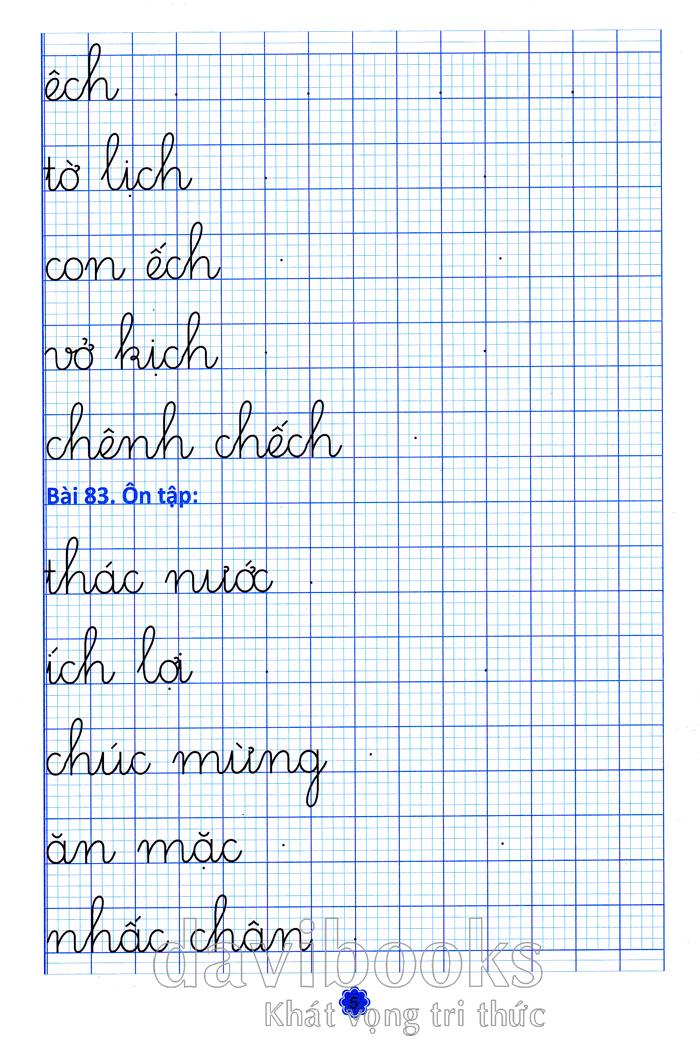 êch
tờ lịch
con ếch
vở kịch
chênh chếch
Bài 83. Ôn tập:
thác nước
ích lợi
chúc mừng
ăn mặc
nhấc chân
davibooks
5
Khát vọng tri thức